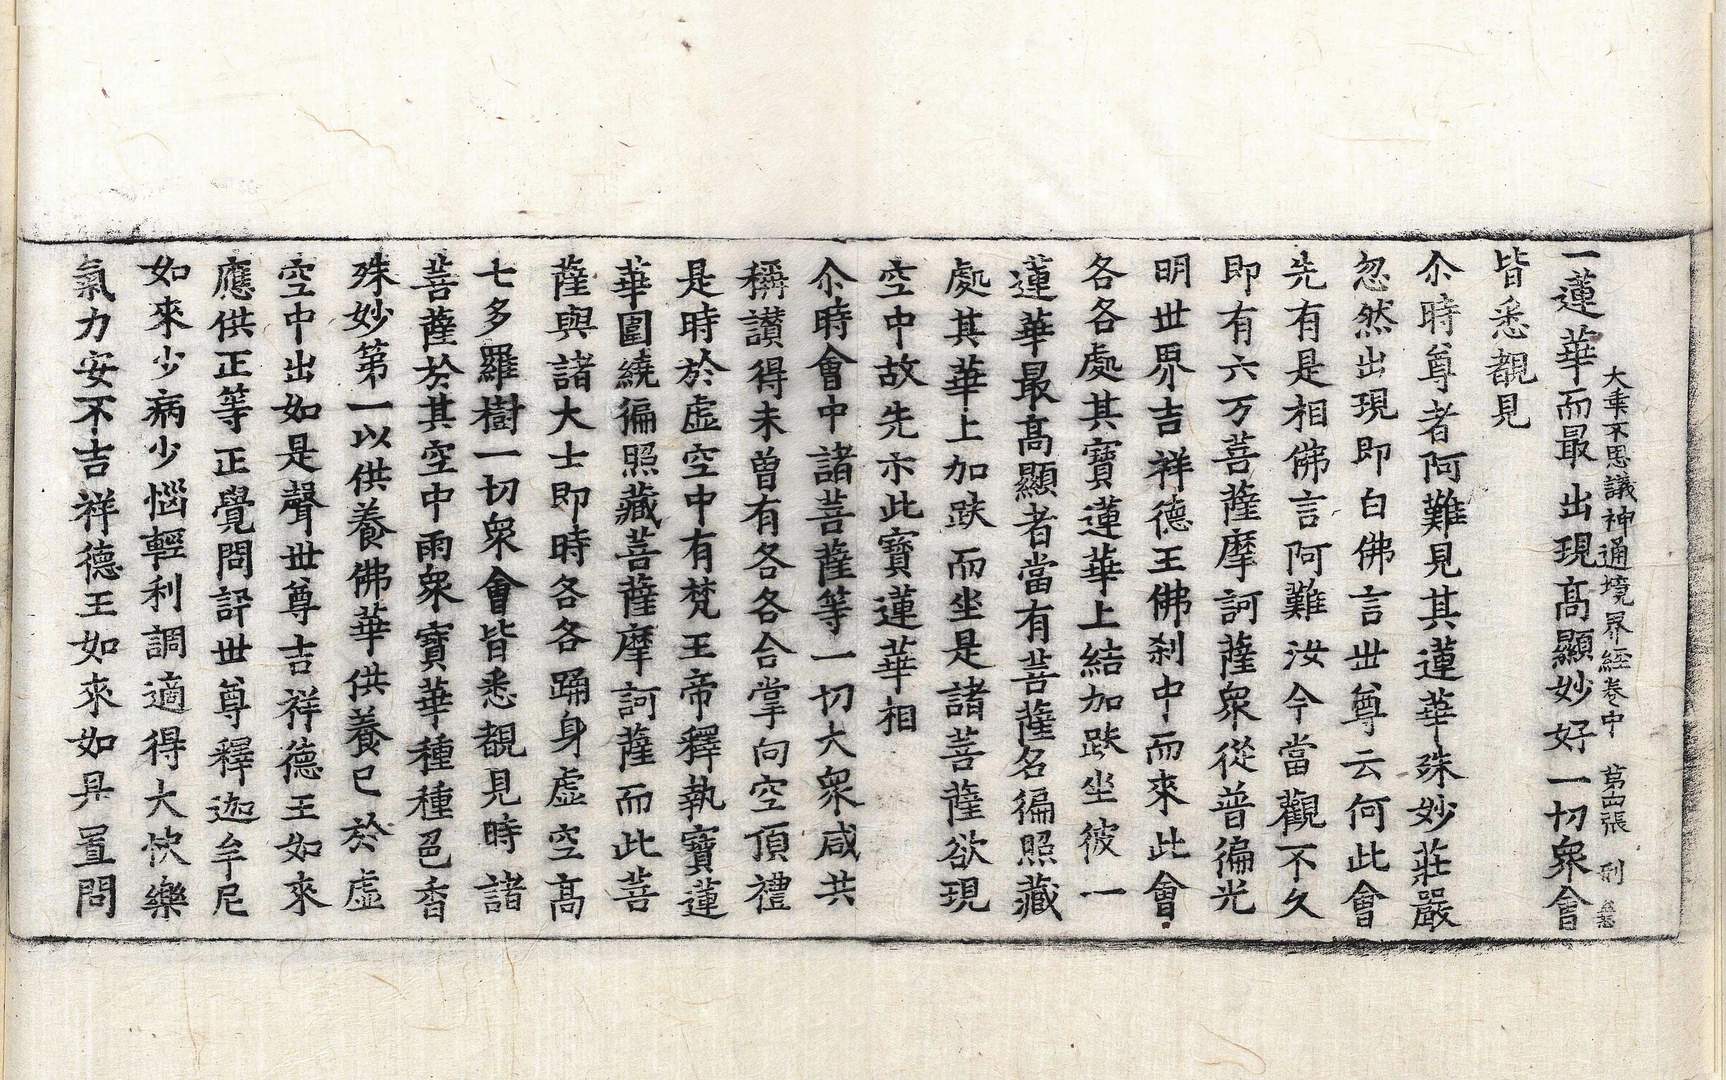 一蓮華而最出現高顯妙好一切衆會
大乗不思議神通境界経卷中 第十四張 刑
皆悉覩見
尒時尊者阿難見其蓮華殊妙莊嚴
忽然出現即白佛言世尊云何此會
先有是相佛言阿難汝今當觀不久
即有六万菩薩摩訶薩衆從普徧光
明世界吉祥德王佛刹中而來此會
各各處其寶蓮華上結加趺坐彼一
蓮華最高顯者當有菩薩名徧照藏
處其華上加趺而坐是諸菩薩欲現
空中故先尓此寶蓮華相
尒時會中諸菩薩等一切大衆咸共
稱讃得未曾有各各合掌向空頂禮
是時於虛空中有梵王帝釋執寶蓮
華圍繞徧照藏菩薩摩訶薩而此菩
薩與諸大士即時各各踊身虛空高
七多羅樹一切衆會皆悉覩見時諸
菩薩於其空中雨衆寶華種種色香
殊妙第一以供養佛華供養已於虛
空中出如是聲世尊吉祥德王如來
應供正等正覺問訊世尊釋迦牟尼
如來少病少惱輕利調適得大快樂
氣力安不吉祥德王如來如是置問